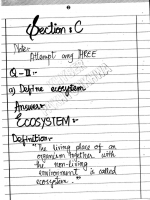 Section : C
Note:-
Attempt any THREE
Q - II :-
a) Define ecosystem
Answer:-
ECOSYSTEM :-
Definition:-
"The living place of an
organism together with
the non-living
environment is called
ecosystem."